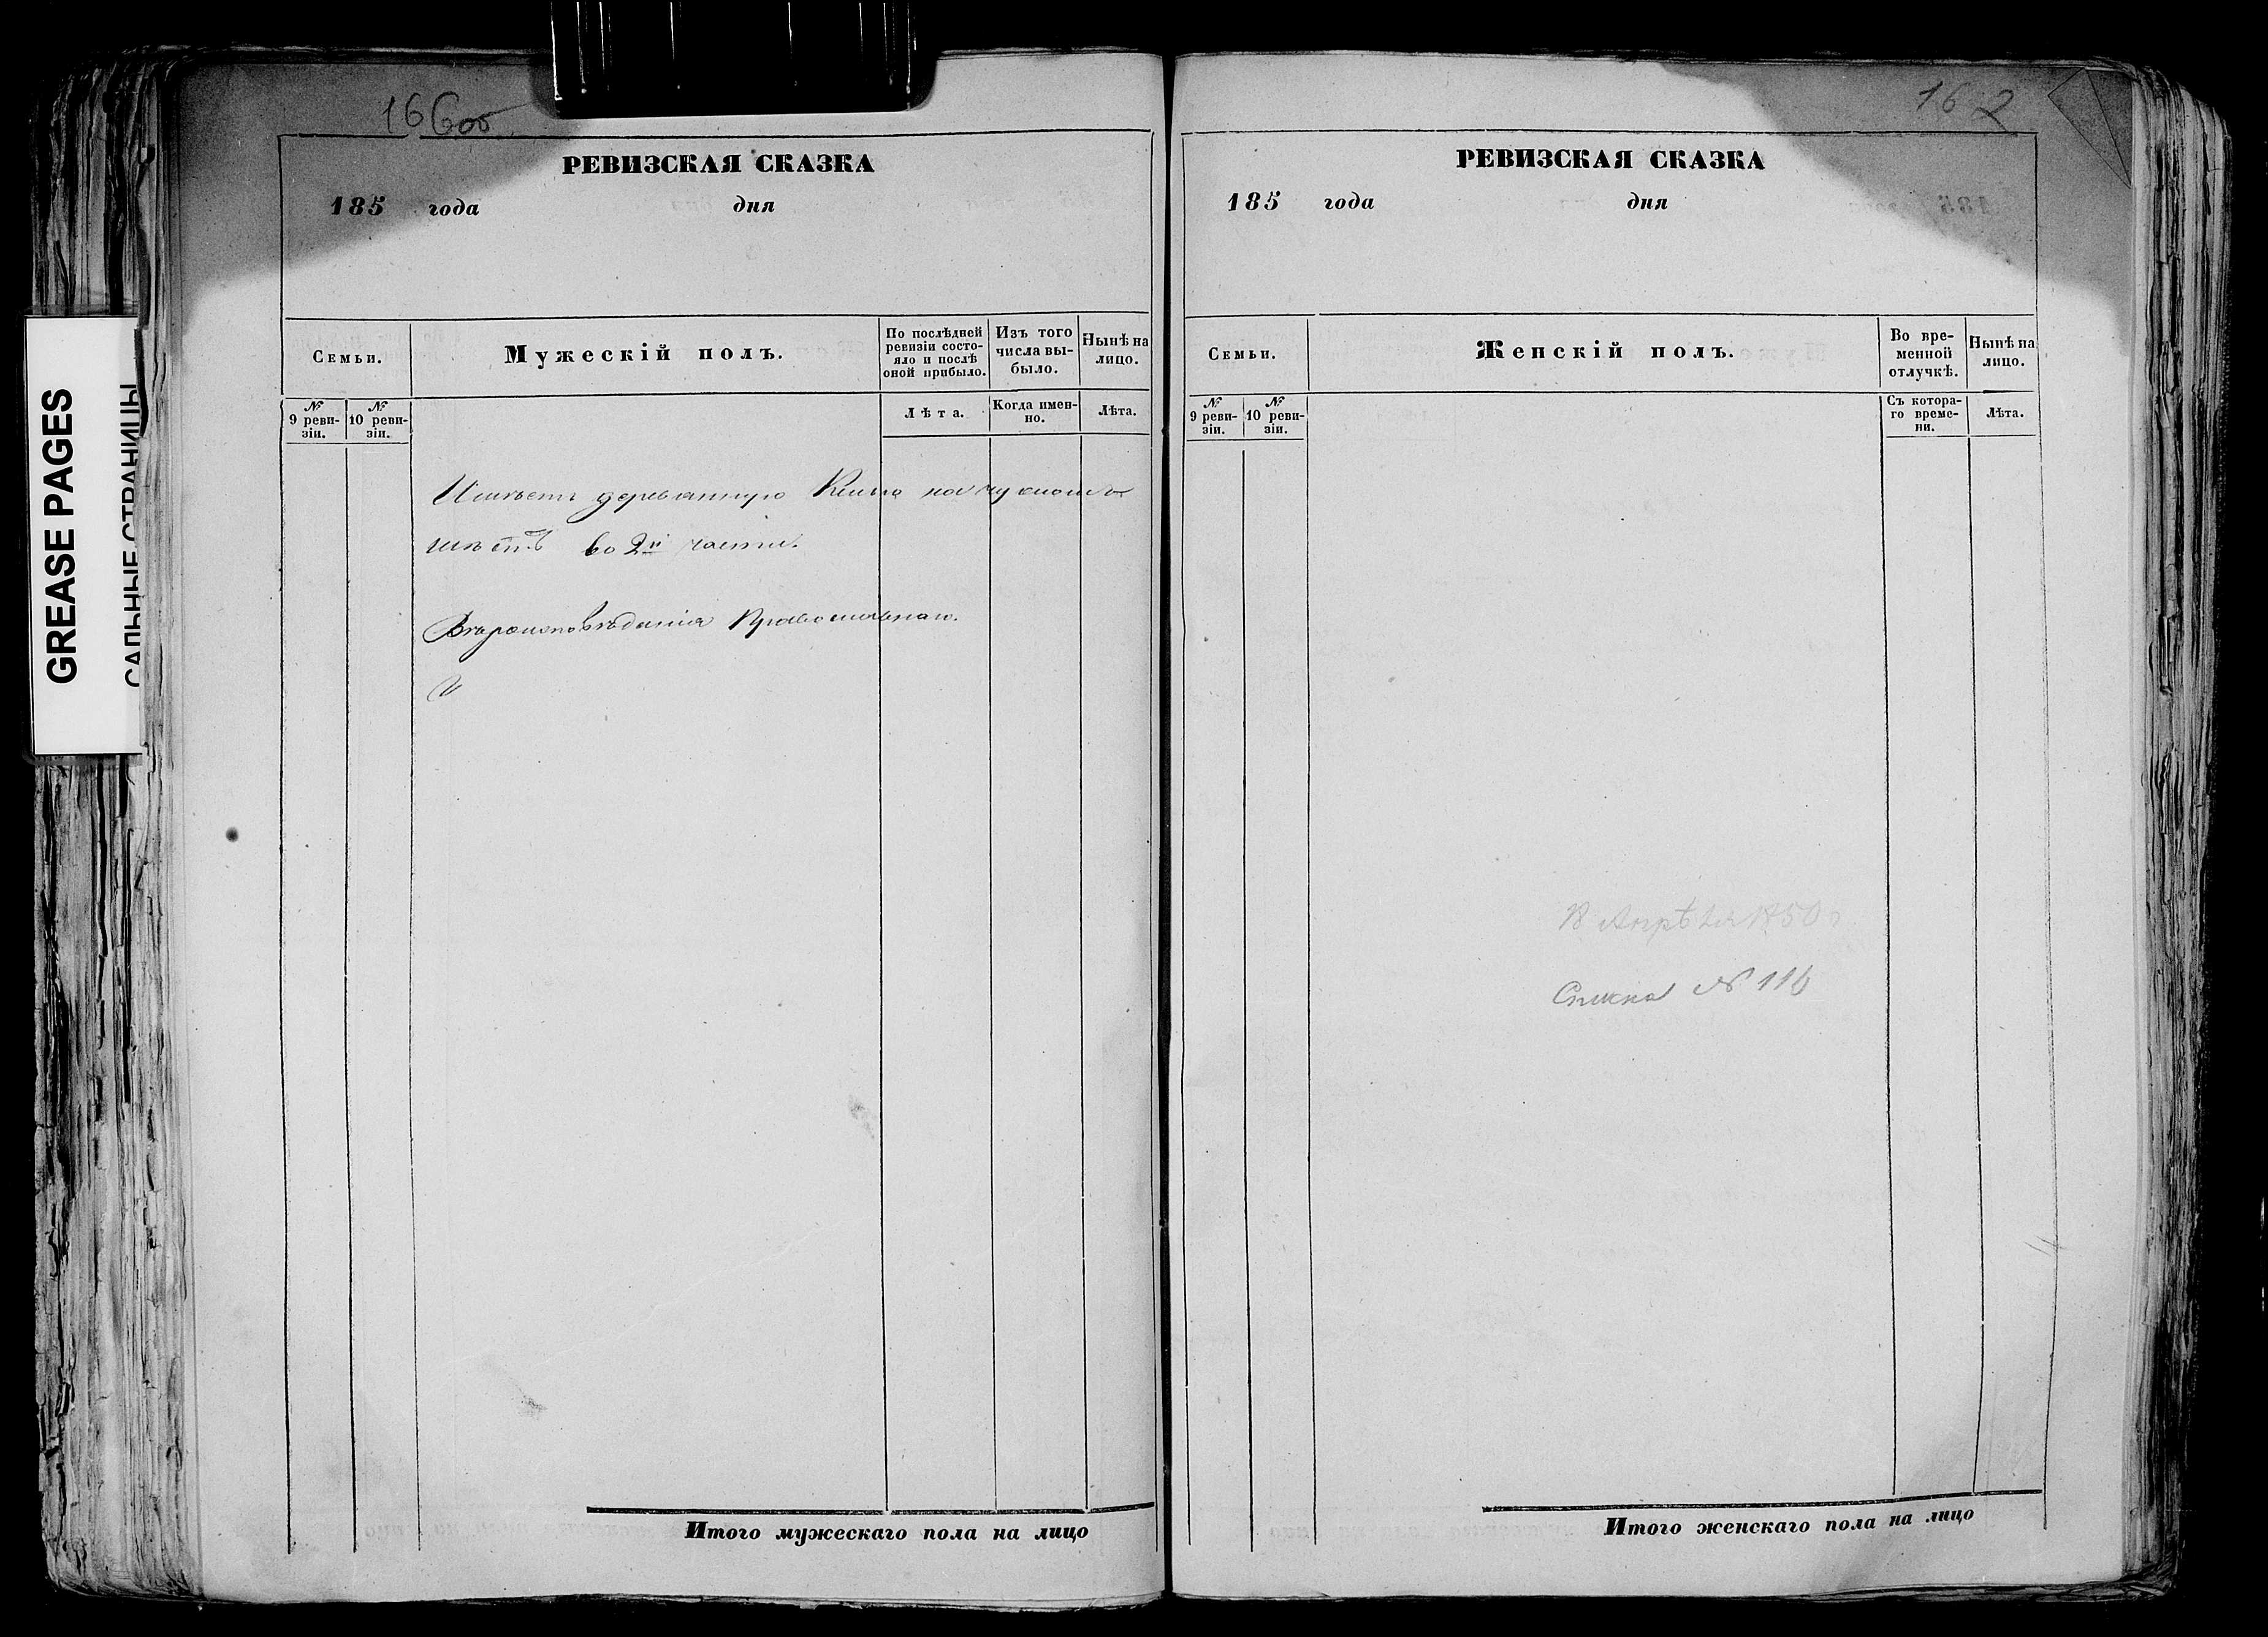 GREASE PAGES
САЛЬНЫЕ СТРАНИЦЫ
166об
РЕВИЗСКАЯ СКАЗКА
185 года дня
Семьи.
Мужескій полъ.
По послѣдней ревизіи состояло и послѣ оной прибыло.
Изъ того числа выбыло.
Нынѣ на лицо.
№ 9 ревизіи.
№ 10 ревизіи.
Лѣта.
Когда именно.
Лѣта.
Имѣетъ деревянную на чужомъ
мѣстѣ во 2й части.
Вѣроисповѣданія Православнаго.
И
Итого мужескаго пола на лицо
162
РЕВИЗСКАЯ СКАЗКА
185 года дня
Семьи.
Женскій полъ.
Во временной отлучкѣ.
Нынѣ на лицо.
№ 9 ревизіи.
№ 10 ревизіи.
Съ котораго времени.
Лѣта.
18 Апрѣля 1850
№ 116
Итого женскаго пола на лицо